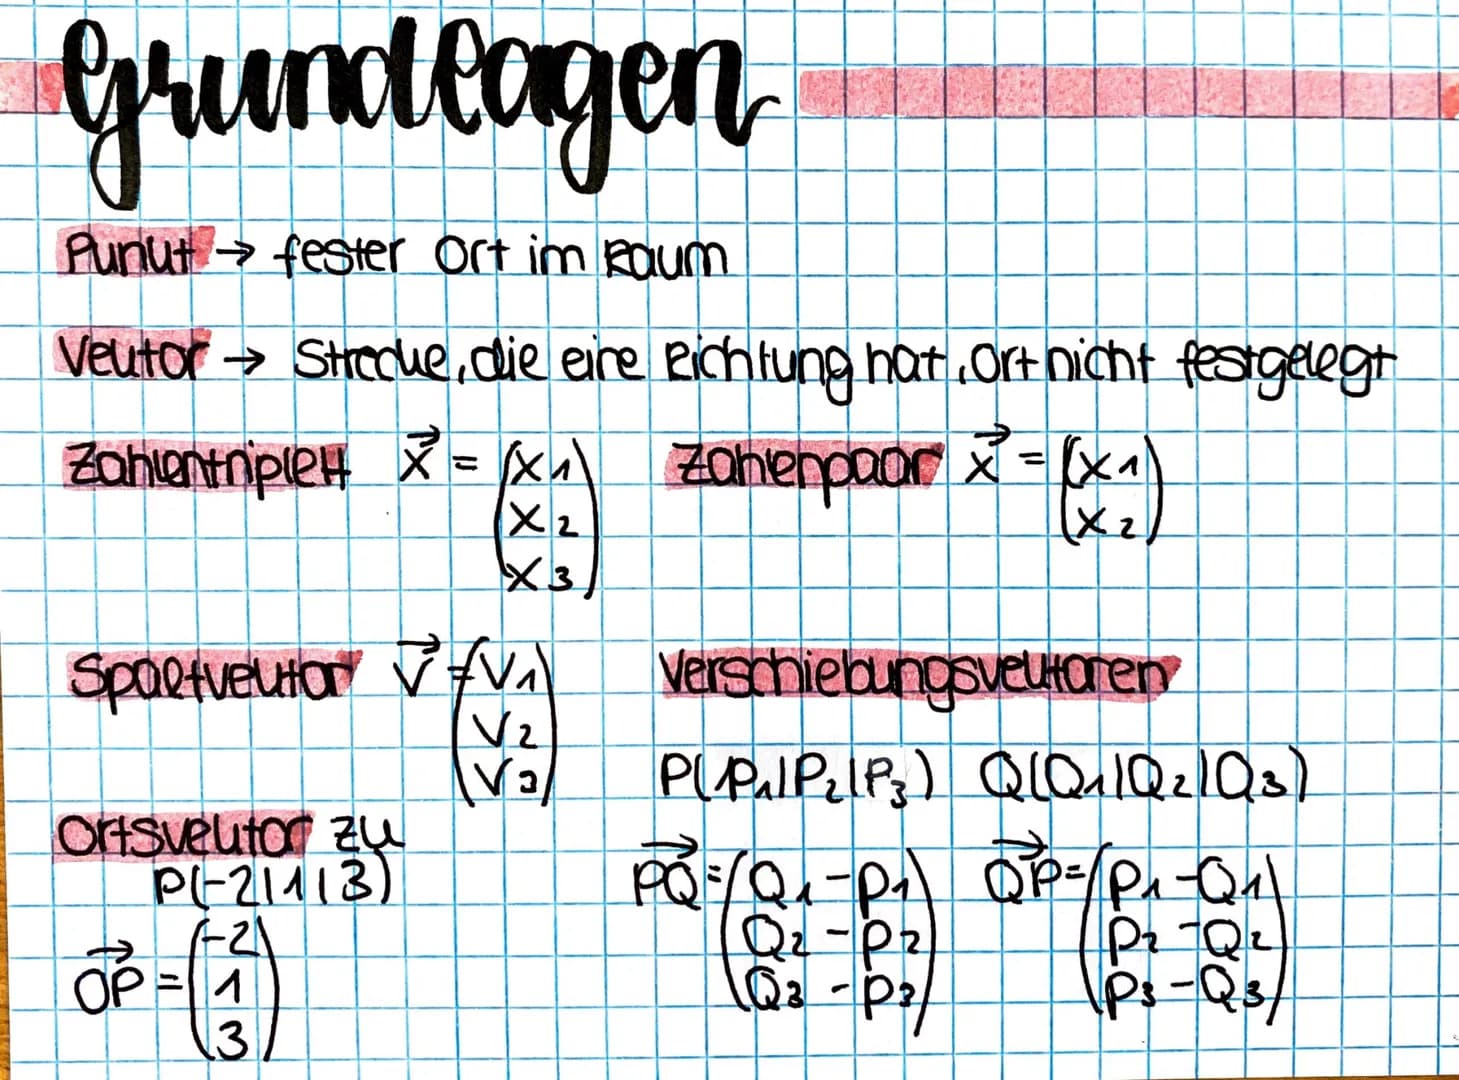 Grundlagen
Punkt → fester Ort im Raum
Vektor → Strecke, die eine Richtung hat, Ort nicht festgelegt
Zahlentriplett x⃗ = (x1 x2 x3) Zahlenpaar x⃗ = (x1 x2)
Spaltvektor v⃗ = (v1 v2 v3)
Verschiebungsvektoren
P(P1|P2|P3) Q(Q1|Q2|Q3)
Ortsvektor zu
P(-2|1|3)
OP⃗ = (-2 1 3)
PQ⃗ = (Q1-P1 Q2-P2 Q3-P3) QP⃗ = (P1-Q1 P2-Q2 P3-Q3)